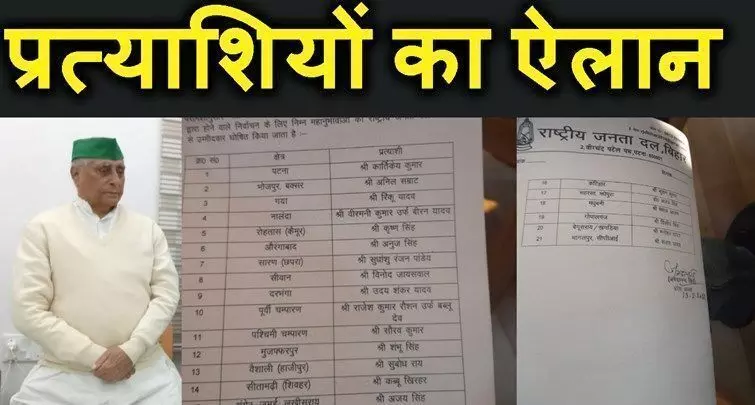 प्रत्याशियों का ऐलान
द्वारा होने वाले निर्वाचन के लिए निम्न महानुभावों को राष्ट्रीय
से उम्मीदवार घोषित किया जाता है :-
क्र० सं० क्षेत्र प्रत्याशी
1 पटना श्री कार्तिकेय कुमार
2 भोजपुर, बक्सर श्री अनिल सम्राट
3 गया श्री रिंकू यादव
4 नालंदा श्री वीरमनी कुमार उर्फ बीरन यादव
5 रोहतास (कैमूर) श्री कृष्ण सिंह
6 औरंगाबाद श्री अनुज सिंह
7 सारण (छपरा) श्री सुधांशु रंजन पांडेय
8 सीवान श्री विनोद जायसवाल
9 दरभंगा श्री उदय शंकर यादव
10 पूर्वी चम्पारण श्री राजेश कुमार रौशन उर्फ बब्लू
देव
11 पश्चिमी चम्पारण श्री सौरव कुमार
12 मुजफ्फरपुर श्री शंभू सिंह
13 वैशाली (हाजीपुर) श्री सुबोध राय
14 सीतामढ़ी (शिवहर) श्री कब्बू खिरहर
श्री अजय सिंह
राष्ट्रीय जनता दल, बिहार
2, वीरचंद पटेल पथ, पटना-800001
16 कटिहार
17 सहरसा,
18 मधुबनी
19 गोपालगंज
20 बेगूसराय / खगड़िया
21 भागलपुर, सीपीआई